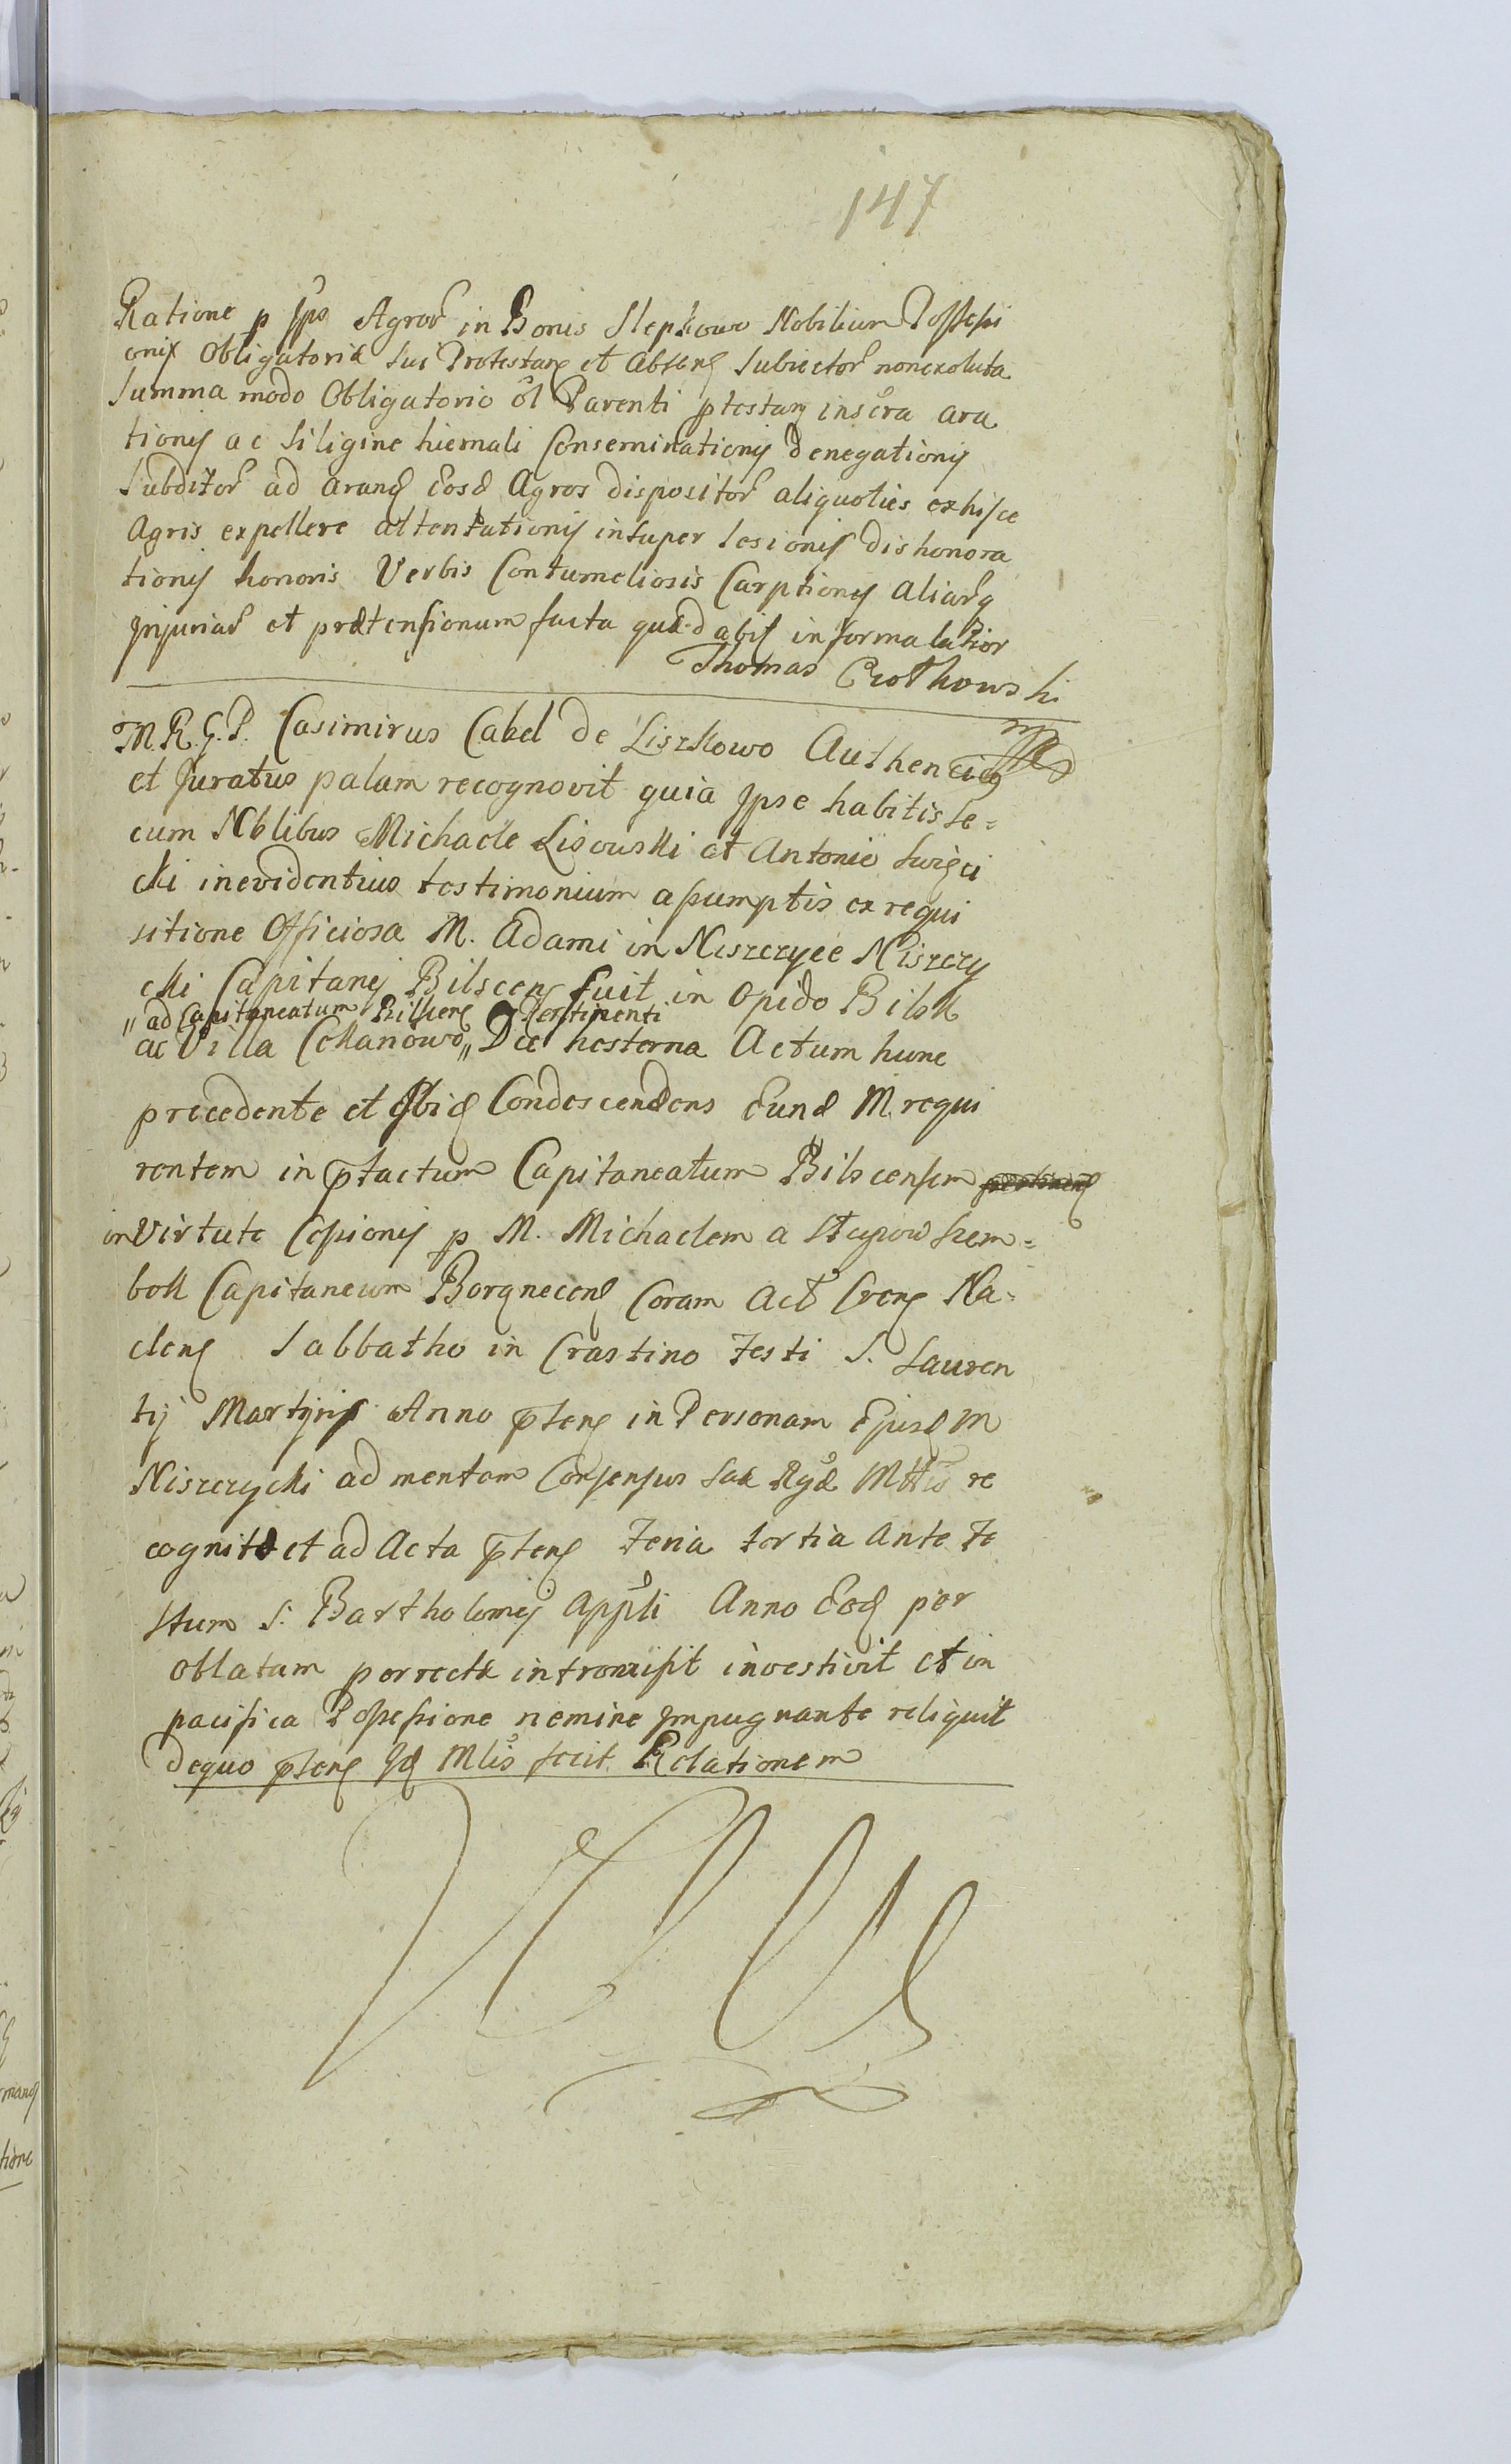 147
Ratione p Ips Agror in Bonis Slepkowo Nobilium Possessi
onis Obligatoriæ sui Protestans et Absens Subiector nonexoluta
Summa modo Obligatorio ol Parenti ptestan inscra ara
tionis ac siligine hiemali Conseminationis denegationis
Subditor ad arand Eosd Agros dispositor aliquoties exhisce
Agris expellere attentationis insuper lesionis dishonora
tionis honoris Verbis Contumeliosis Carptionis aliarq
Injuriar et prætensionum facta quæ d abis in forma latior
Thomas
mpp
M. R. G. P. Casimirus Cabel de Liszkowo Authenticq
et Juratus palam recognovit quia Ipse habitis se=
cum Nblibus Michaele Lisowski et Antonio Swięci
cki inevidentius testimonium assumptis ex requi
sitione Officiosa M. Adami in Niszczyce Niszczy
cki Capitanej Bilscen fuit in Opido Bilsk
" ad Capitaneatum Bilscens Pertinenti
ac Villa Cekanowo " Die hesterna Actum hunc
precedente et Ibid Condescendens Eund M. requi
rentem in ptactum Capitaneatum Bilscensem
in Virtute Cessionis p M. Michaelem a Stupow Szem=
bek Capitaneum Borqnecens Coram Act Cren Na=
clens Sabbatho in Crastino Festi S. Lauren
tij Martyris Anno ptens in Personam Ejusd M
Niszczycki ad mentem Consensus Suæ Rgæ Mttis re
cognitæ et ad Acta ptens Feria tertia Ante Fe
stum S. Bartholomej Appli Anno Eod per
oblatam porrectæ intromisit investivit et in
pacifica Possessione nemine Impugnante reliquit
dequo ptens Id Mlis fecit Relationem